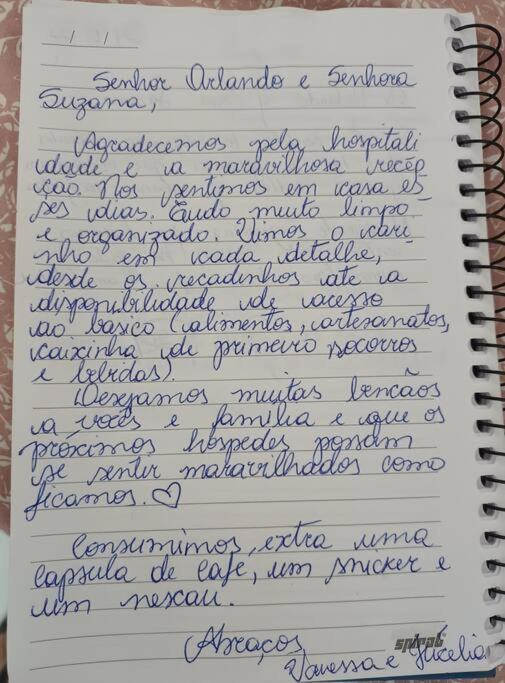 / /
Senhor Orlando e Senhora
Suzana,
Agradecemos pela hospitali
dade e a maravilhosa recep-
ção. Nos sentimos em casa es-
ses dias. Tudo muito limpo
e organizado. Vimos o cari-
nho em cada detalhe,
desde os recadinhos até a
disponibilidade de acesso
ao básico (alimentos, artesanatos,
caixinha de primeiro socorros
e bebidas).
Desejamos muitas bençãos
a vocês e família e que os
próximos hospedes possam
se sentir maravilhados como
ficamos. ♡
Consumimos, extra uma
capsula de café, um snicker e
um nescau.
Abraços,
spiral
Vanessa e Jucelia